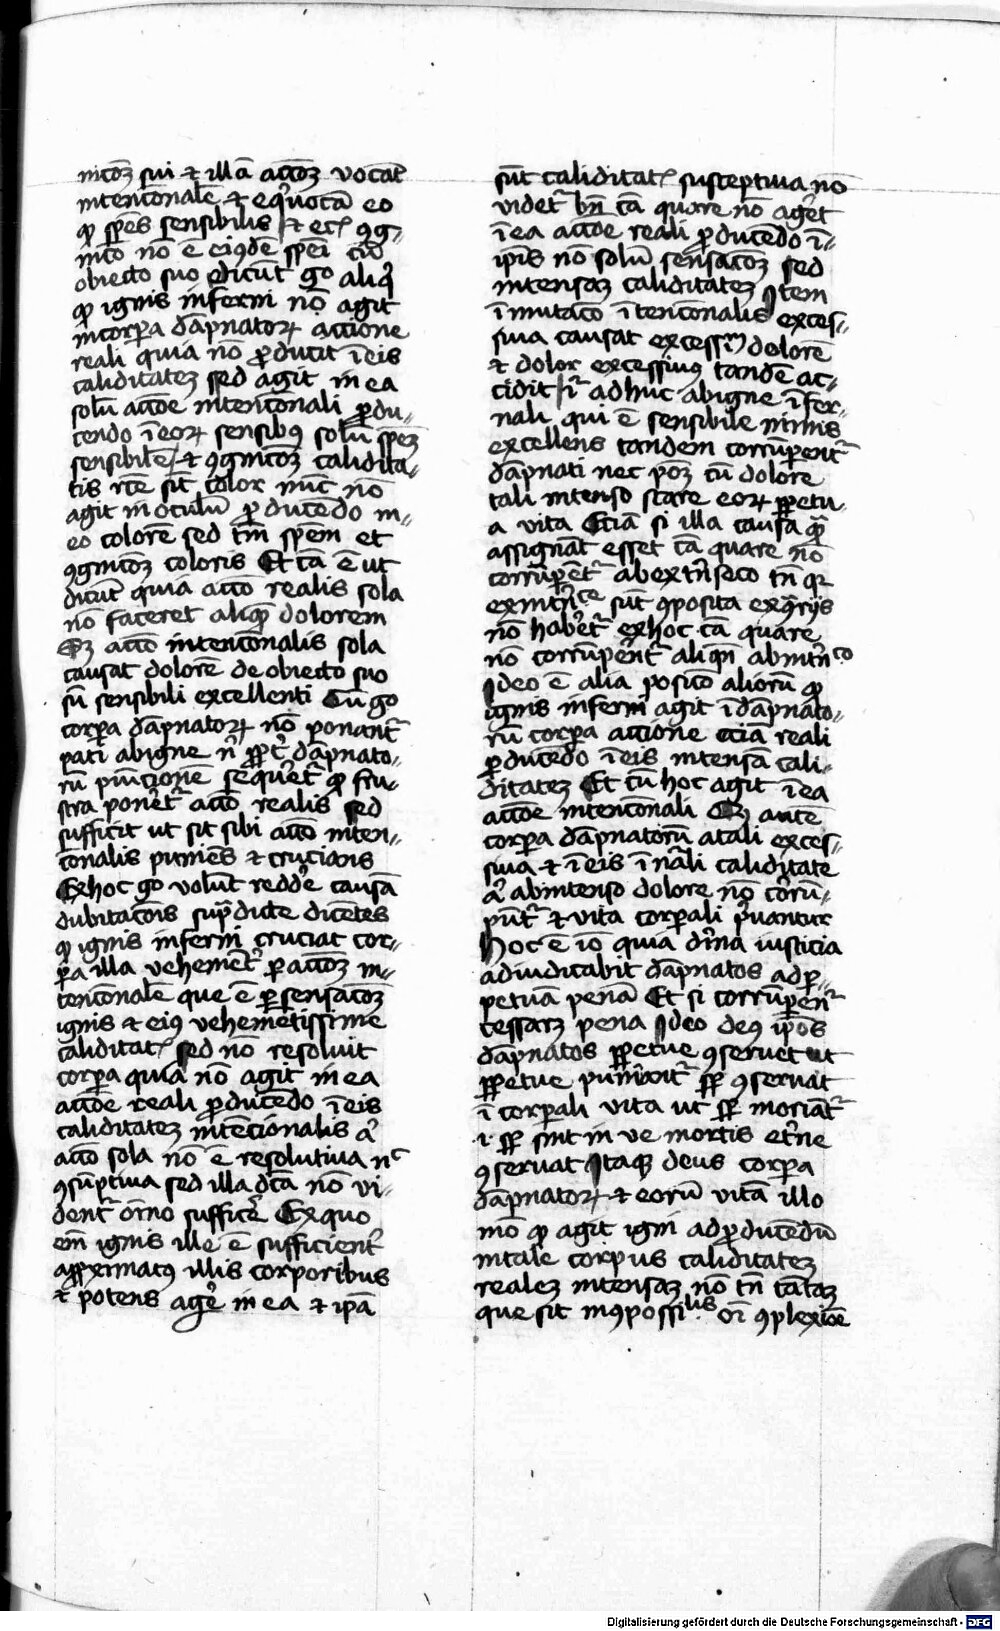 nicōꝫ sui ⁊ illā actōꝫ vocāt
intenconalē ⁊ eq̄uocā eo
ꝙ spēs sensibilis ⁊ eciā ꝯg⸗
nico nō ē eiꝰdē speī cū
obiecto suo dicūt go aliq̄
ꝙ ignis inferni nō agit
in corꝑa dāpnatoꝝ accione
reali quia nō ꝓducit ī eis
caliditateꝫ sed agit in ea
solū actōe intenconali ꝓdu⸗
cendo ī eoꝝ sensibꝰ solū spēꝫ
sensibilē ⁊ ꝯgnicōꝫ calidita⸗
tis rōe sic color nūc nō
agit in oculū ꝓducēdo in⸗
eo colorē sed tm̄ spēm et
ꝯgnicōꝫ coloris Et cā ē ut
dicūt quia actō realis sola
nō faceret aliqē dolorem
Sꝫ actō intenconalis sola
causat dolorē de obiecto suo
sn̄ sensibili excellenti Cum go
corꝑa dāpnatoꝝ nō ponant᷑
pati ab igne nⁱ ꝓpt᷑ dāpnato⸗
rū punicionē seqr̄et᷑ ꝙ fru⸗
stra poneret᷑ actō realis sed
sufficit ut sit sibi actō inten⸗
conalis puniēs ⁊ crucians
Ex hoc go volūt redde᷑ causā
dubitacōis sup̄dicte dicētes
ꝙ ignis inferni cruciat cor⸗
ꝑa illa vehemēt᷑ ꝑ actōꝫ in⸗
tenconalē que ē ꝑ sensacōꝫ
ignis ⁊ eiꝰ vehemētissime
caliditat᷑ sed nō resoluit
corꝑa quia nō agit in ea
actōe reali ꝓducēdo ī eis
caliditateꝫ intēcionalis aͥ
actō sola nō ē resolutiua nᶜ
ꝯsūptiua sed illa dcā nō vi⸗
dent᷑ om̄no suffice᷑ Ex quo
em̄ ignis ille ē sufficient᷑
apꝓximatꝰ illis corporibus
⁊ potens age᷑ in ea ⁊ ipā
sūt caliditat᷑ susceptiua nō
videt᷑ bn̄ cā quare nō aget
ī ea actōe reali ꝓducēdo ī⸗
ipīs nō solū sensacōꝫ sed
intensaꝫ caliditateꝫ Item
īmutaco ītenconalis exces⸗
siua causat excessiuū dolorē
⁊ dolor excessiuus tandē ac⸗
cidit sⁱ adhuc ab igne īfer⸗
nali qui ē sensibile nimis
excellens tandem corrūpent᷑
dāpnati nec poꝫ cū dolore
tali intenso stare eoꝝ ꝑpetu⸗
a vita Eciā si illa causa quā
assignāt esset cā quare nō
corrūpēt᷑ ab extrīseco tn̄ qꝛ
ex intrīᶜᵉ sūt ꝯposita ex ꝯrͣrijs
nō habet᷑ ex hoc cā quare
nō corrūperent᷑ aliqn̄ ab intrīᶜᵒ
Ideo ē alia posico aliorū ꝙ
ignis inferni agit ī dāpnato⸗
rū corꝑa accione eciā reali
ꝓducēdo ī eis intensā cali⸗
ditateꝫ Et cū hoc agit ī ea
actōe intenconali Sꝫ autē
corꝑa dāpnatorū a tali exces⸗
siua ⁊ ī eis īnāli caliditate
aͥ ab intenso dolore nō corrū⸗
pūt᷑ ⁊ vita corꝑali pͥuantur
Hoc ē iō quia diīna iusticia
adiudicabit dāpnatos ad ꝑ⸗
petuā penā Et si corrūpent᷑
cessaꝫ pena Ideo deꝰ ipōs
dāpnatos ꝑpetue ꝯseruet ut
ꝑpetue puniant᷑ sꝑ ꝯseruat
ī corꝑali vita ut sꝑ moriāt᷑
·i· sꝑ sint in ve mortis et᷑ne
ꝯseruat Itaqꝫ deus corꝑa
dāpnatoꝝ ⁊ eorū vitā illo
mō ꝙ agit igni ad ꝓducēdū
in tale corpus caliditateꝫ
realeꝫ intensaꝫ nō tn̄ tātaꝫ
que sit inꝯpossiˡⁱˢ oī ꝯplexiōe